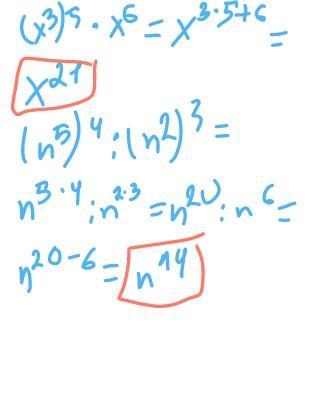 (x³)⁵ · x⁶ = x³·⁵⁺⁶ =
x²¹
(n⁵)⁴ : (n²)³ =
n⁵·⁴ : n²·³ = n²⁰ : n⁶ =
n²⁰⁻⁶ = n¹⁴